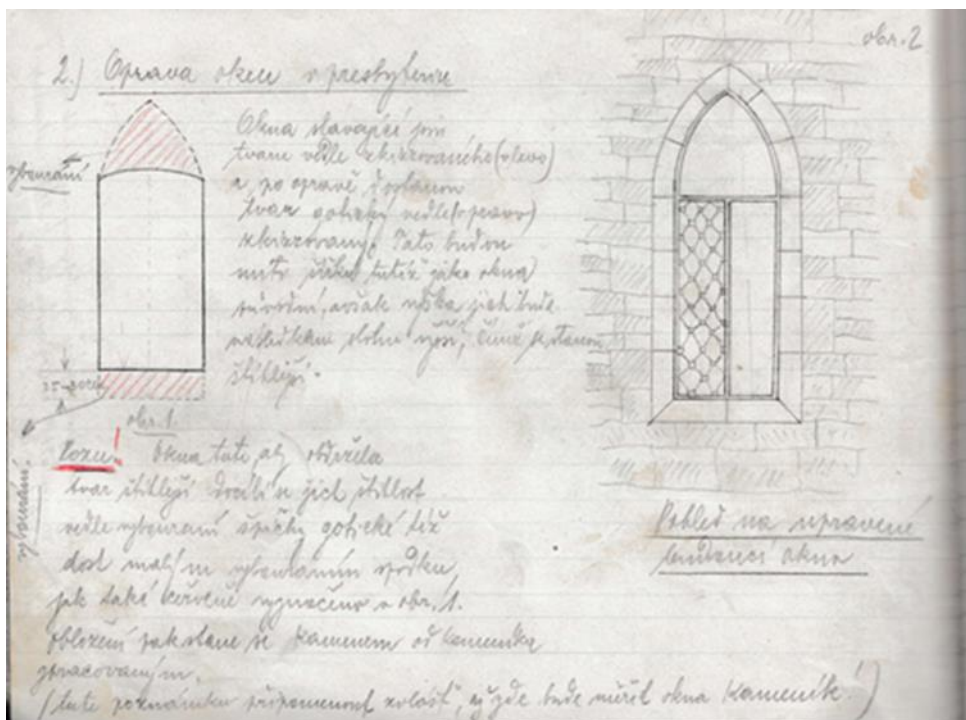 obr. 2
2.) Oprava oken v presbyteriu
Okna stávající jsou
tvaru vedle skizzovaného (vlevo)
a po opravě dostanou
tvar gotický vedle (vpravo)
skizzovaný. Tato budou
míti šířku tutéž jako okna
původní, avšak výška jich bude
následkem oblouku vyšší, čímž se stanou
štíhlejší.
vybourání
obr. 1
vybourání.
Pozn.! Okna tato, aby obdržela
tvar štíhlejší docílí se jich štíhlost
vedle vybourání špičky gotické též
dost malým vybouráním spodku,
jak také červeně vyznačeno v obr. 1.
Obložení pak stane se kamenem od kameníka
zpracovaným.
(tuto poznámku připomenout zvlášť, až zde bude měřit okna Kameník!)
Pohled na upravené
budoucí okno